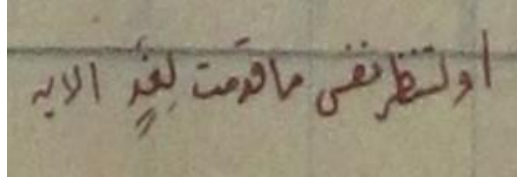 اولتنظر نفس ما قدمت لِغَدٍ الايه